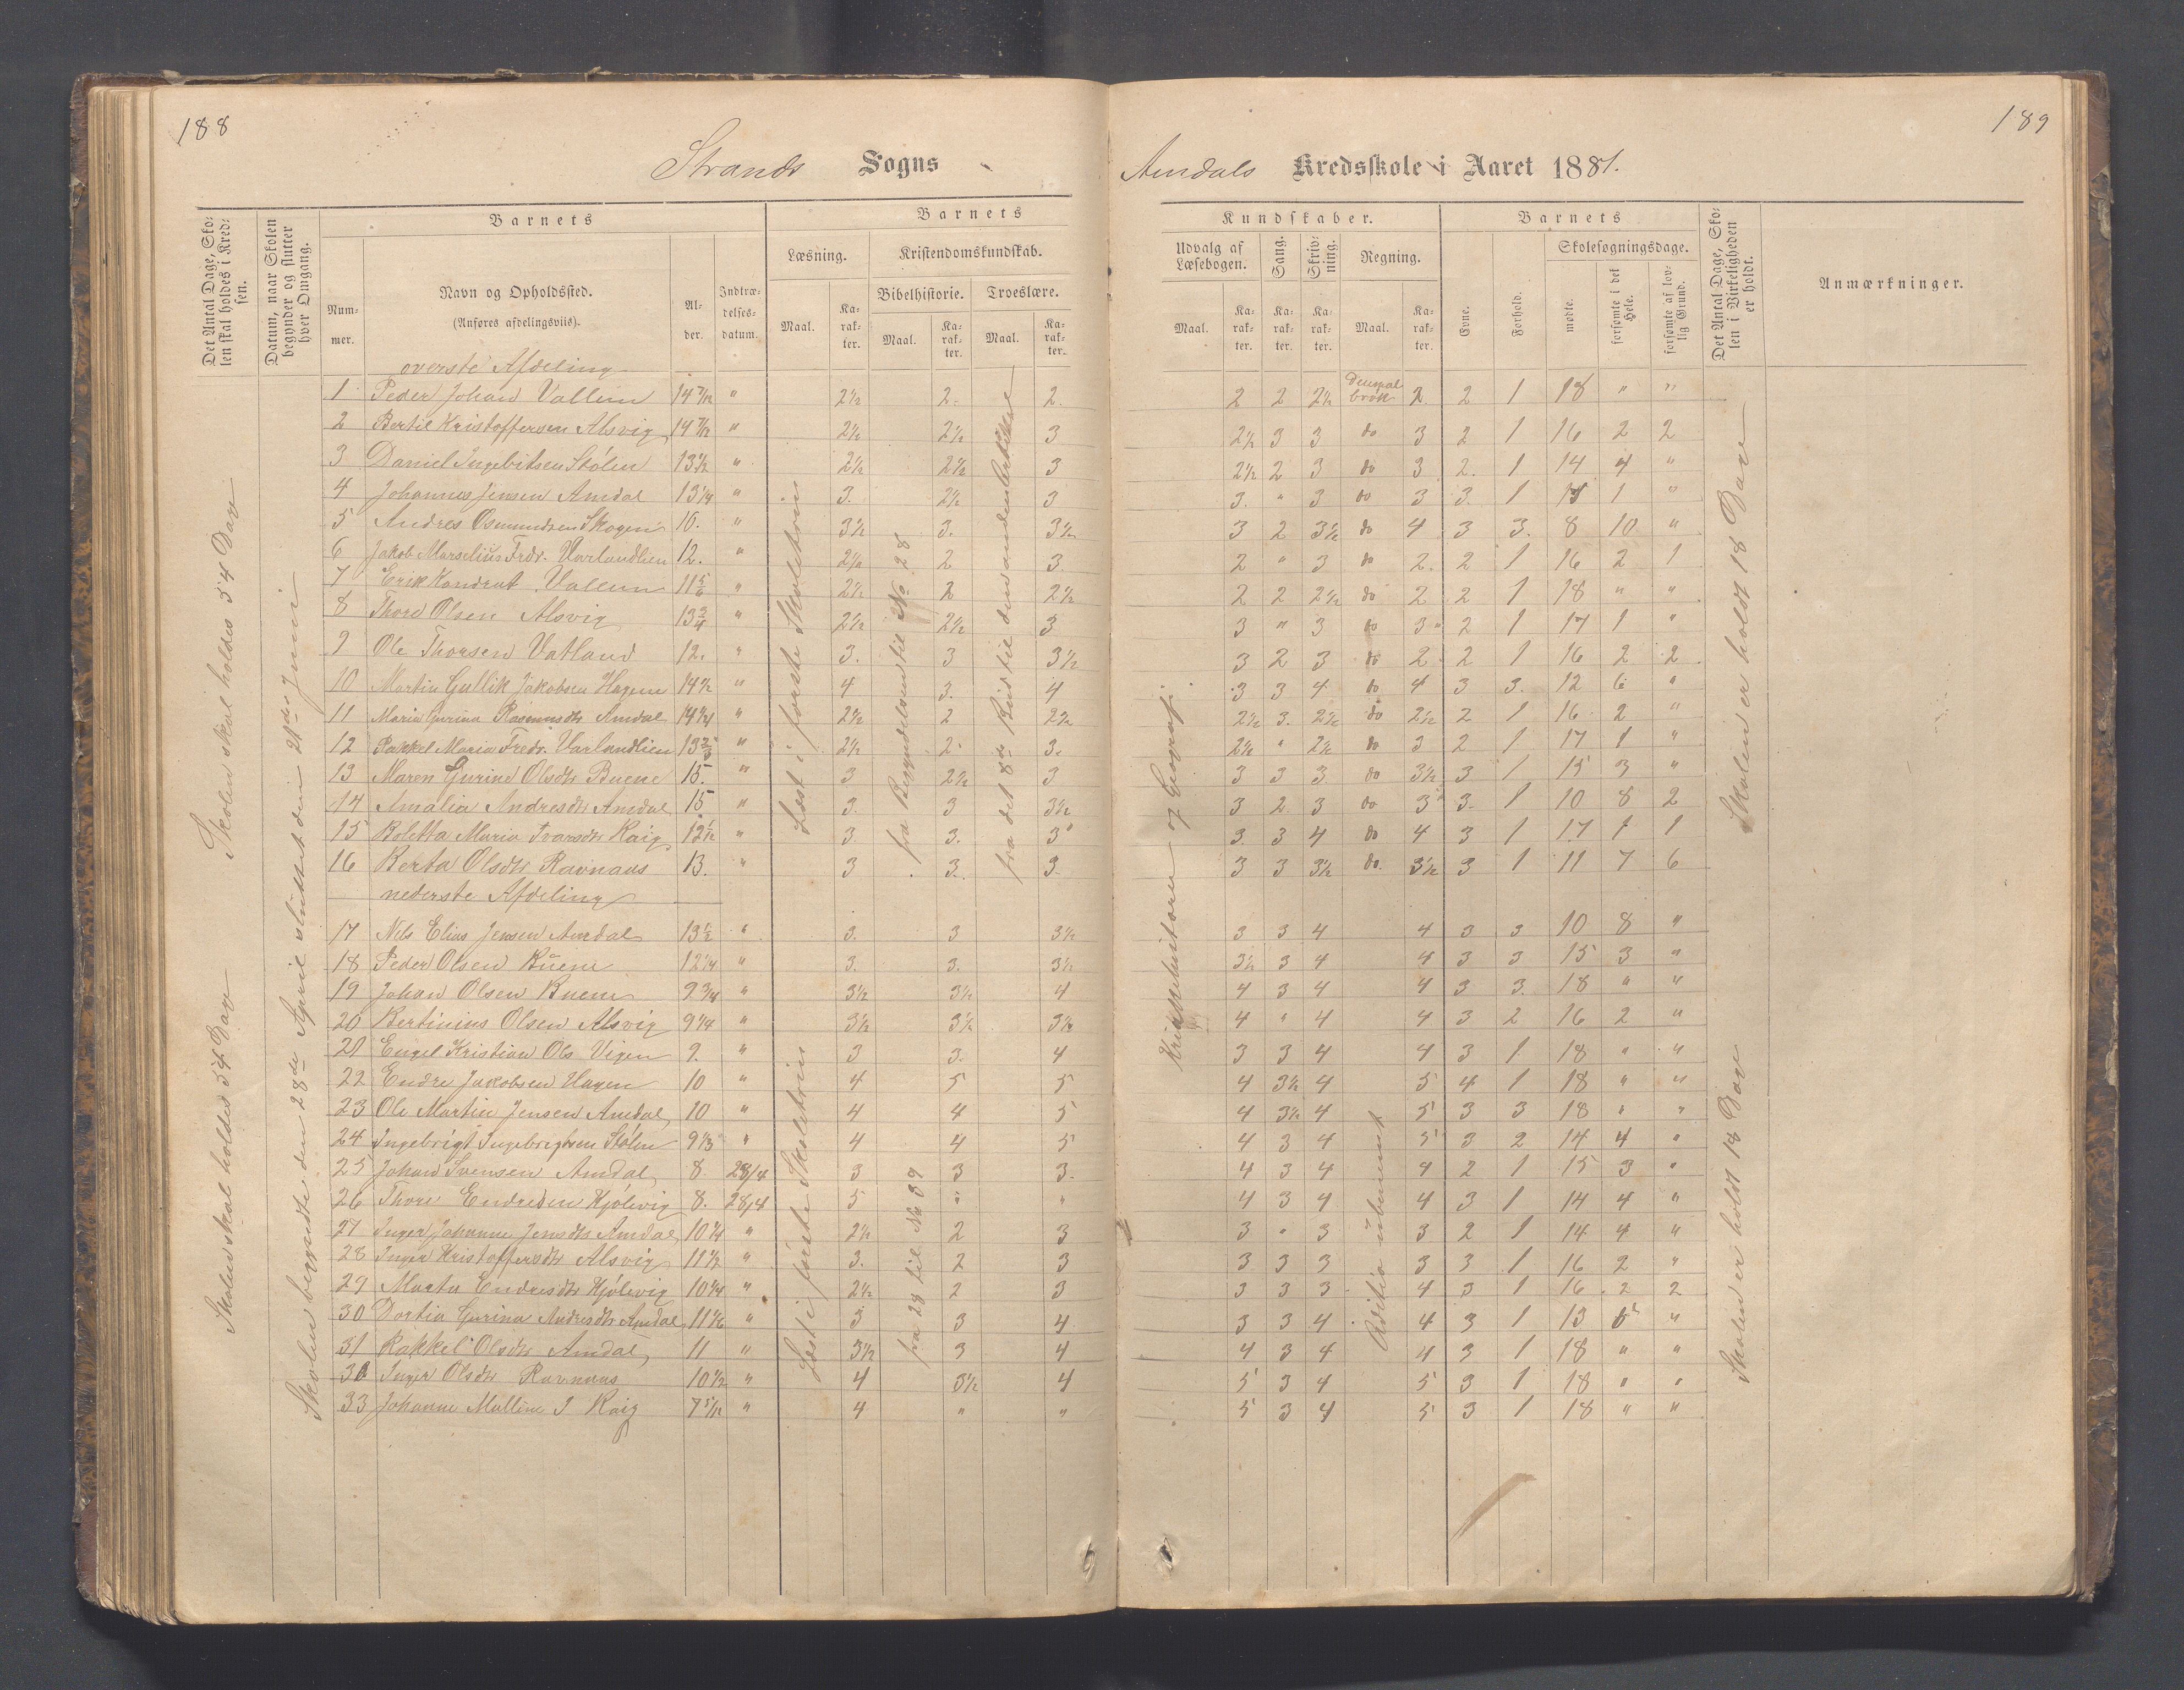 188
189
Strands Sogns
Amdals Kredsskole i Aaret 1881.
Det Antal Dage, Skolen skal holdes i Kredsen.
Datum, naar Skolen begynder og slutter hver Omgang.
Barnets
Nummer.
Navn og Opholdssted.
(Anføres afdelingsviis).
Alder.
Indtrædelsesdatum.
Barnets
Læsning.
Kristendomskundskab.
Bibelhistorie. Troeslære.
Maal. Karakter. Maal. Karakter. Maal. Karakter.
Kundskaber.
Udvalg af Læsebogen. Sang. Skrivning. Regning.
Maal. Karakter. Karakter. Karakter. Maal. Karakter.
Barnets
Evne. Forhold.
Skolesøgningsdage.
mødte. forsømte i det Hele. forsømte af lovlig Grund.
Det Antal Dage, Skolen i Virkeligheden er holdt.
Anmærkninger.
Skolen skal holdes 54 Dage
Skolen skal holdes 54 Dage
Skolen begyndte den 28de April sluttet den 21de Juni
Læst i første Skoletrin
fra Begyndelsen til No 28
fra det 8de Bud til den anden Artikel
Læst i første Skoletrin
fra 28 til No 39
og Geografi
Adition ubenævnt
Skolen er holdt 18 Dage
Skolen er holdt 18 Dage
overste Afdeling
1 Peder Johan Vallem 14 7/12 " 2½ 2. 2. 2 2 2½ brøk 2 2 1 18 " "
2 Bertil Kristoffersen Alsvig 14 7/12 " 2½ 2½ 3 2½ 3 3 do 3 2 1 16 2 2
3 Daniel Ingebritsen Stølen 13½ " 2½ 2½ 3 2½ 2 3 do 3 2. 1 14 4 "
4 Johannes Jensen Amdal 13¼ " 3. 2½ 3 3. " 3 do 3 3. 1 1 "
5 Andres Osmundsen Skogen 10. " 3½ 3. 3½ 3 2 3½ do 4 3 3. 8 10 "
6 Jakob Marselius Frdr. Varlandlien 12. " 2½ 2 3 2 " 3 do 2. 2 1 16 2 1
7 Erik Kondrat Vallem 11 5/6 " 2½ 2 2½ 2 2 2½ do 2 2 1 18 " "
8 Thore Olsen Alsvig 13¾ " 2½ 2½ 3 3 " 3 do 3 2 1 17 1 "
9 Ole Thorsen Vatland 12. " 3. 3 3½ 3 2 3 do 2 2 1 16 2 2
10 Martin Gullik Jakobsen Hagen 14½ " 4 3. 4 3 3 4 do 4 3 3. 12 6 "
11 Maria Gurina Rasmusdtr Amdal 14¼ " 2½ 2 2½ 2½ 3. 2½ do 2½ 2 1 16 2 "
12 Rakkel Maria Fredr. Varlandlien 13 " 2½ 2 3. 2½ " 2½ do 3 2 1 17 1 "
13 Maren Gurine Olsdtr Buene 15. " 3 2½ 3 3 3 3 do 3½ 3 1 15 3 "
14 Amalia Andresdtr Amdal 15 " 3. 3 3½ 3 2 3 do 3 3. 1 10 8 2
15 Boletta Maria Ivarsdtr Raig 12½ " 3. 3. 3 3 3 4 do 4 3 1 17 1 1
16 Berta Olsdtr Ravnaas 13. " 3 3. 3. 3 3 3½ do. 3½ 3 1 11 7 6
nederste Afdeling
17 Nils Elias Jensen Amdal 13½ " 3. 3 3½ 3 3 4 4 3 3 10 8 "
18 Peder Olsen Buene 12¼ " 3. 3. 3½ 3½ 3 4 4 3 3 15 3 "
19 Johan Olsen Buene 9¾ " 3½ 3½ 4 4 3 4 4 3 3. 18 " "
20 Bertinius Olsen Alsvig 9¼ " 3½ 3½ 3½ 4 " 4 4 3 2 16 2 "
21 Engel Kristian Ols Vigen 9. " 3 3. 4 3 3 4 4 3 1 18 " "
22 Endre Jakobsen Hagen 10 " 4 5 5 4 3½ 4 5 4 1 18 " "
23 Ole Martin Jensen Amdal, 10 " 4 4 5 4 3½ 4 5 3 3 18 " "
24 Ingebrigt Ingebrigtsen Stølen 9⅓ " 4 4 5 4 3 4 5 3 2 14 4 "
25 Johan Svensen Amdal, 8 28/4 3 3 3. 4 3 4 4 2 1 15 3 "
26 Thore Endresen Hjölevig 8. 28/4 5 " " 4 3 4 4 3 1 14 4 "
27 Inger Johanne Jensdtr Amdal, 10¼ " 2½ 2 3 3 " 3 3 2 1 14 4 "
28 Inger Kristoffersdtr Alsvig 11½ " 3. 2 3 3 3 3 3 3 1 16 2 "
29 Marta Endresdtr Hjölevig 10¼ " 2½ 2 3 3 3 3 4 3 1 16 2 2
30 Dortia Gurina Andresdtr Amdal, 11 1/6 " 3 3 4 3 3 4 4 3 1 13 5 "
31 Rakkel Olsdtr Amdal, 11 " 3½ 3 4 4 3 4 4 3 1 18 " "
Inger Olsdtr Ravnaas 10½ " 4 3½ 4 5 3 4 5 3 1 18 " "
33 Johanne Malline I Raig 7 5/12 " 4 " " 5 3 4 5 3 1 18 " "